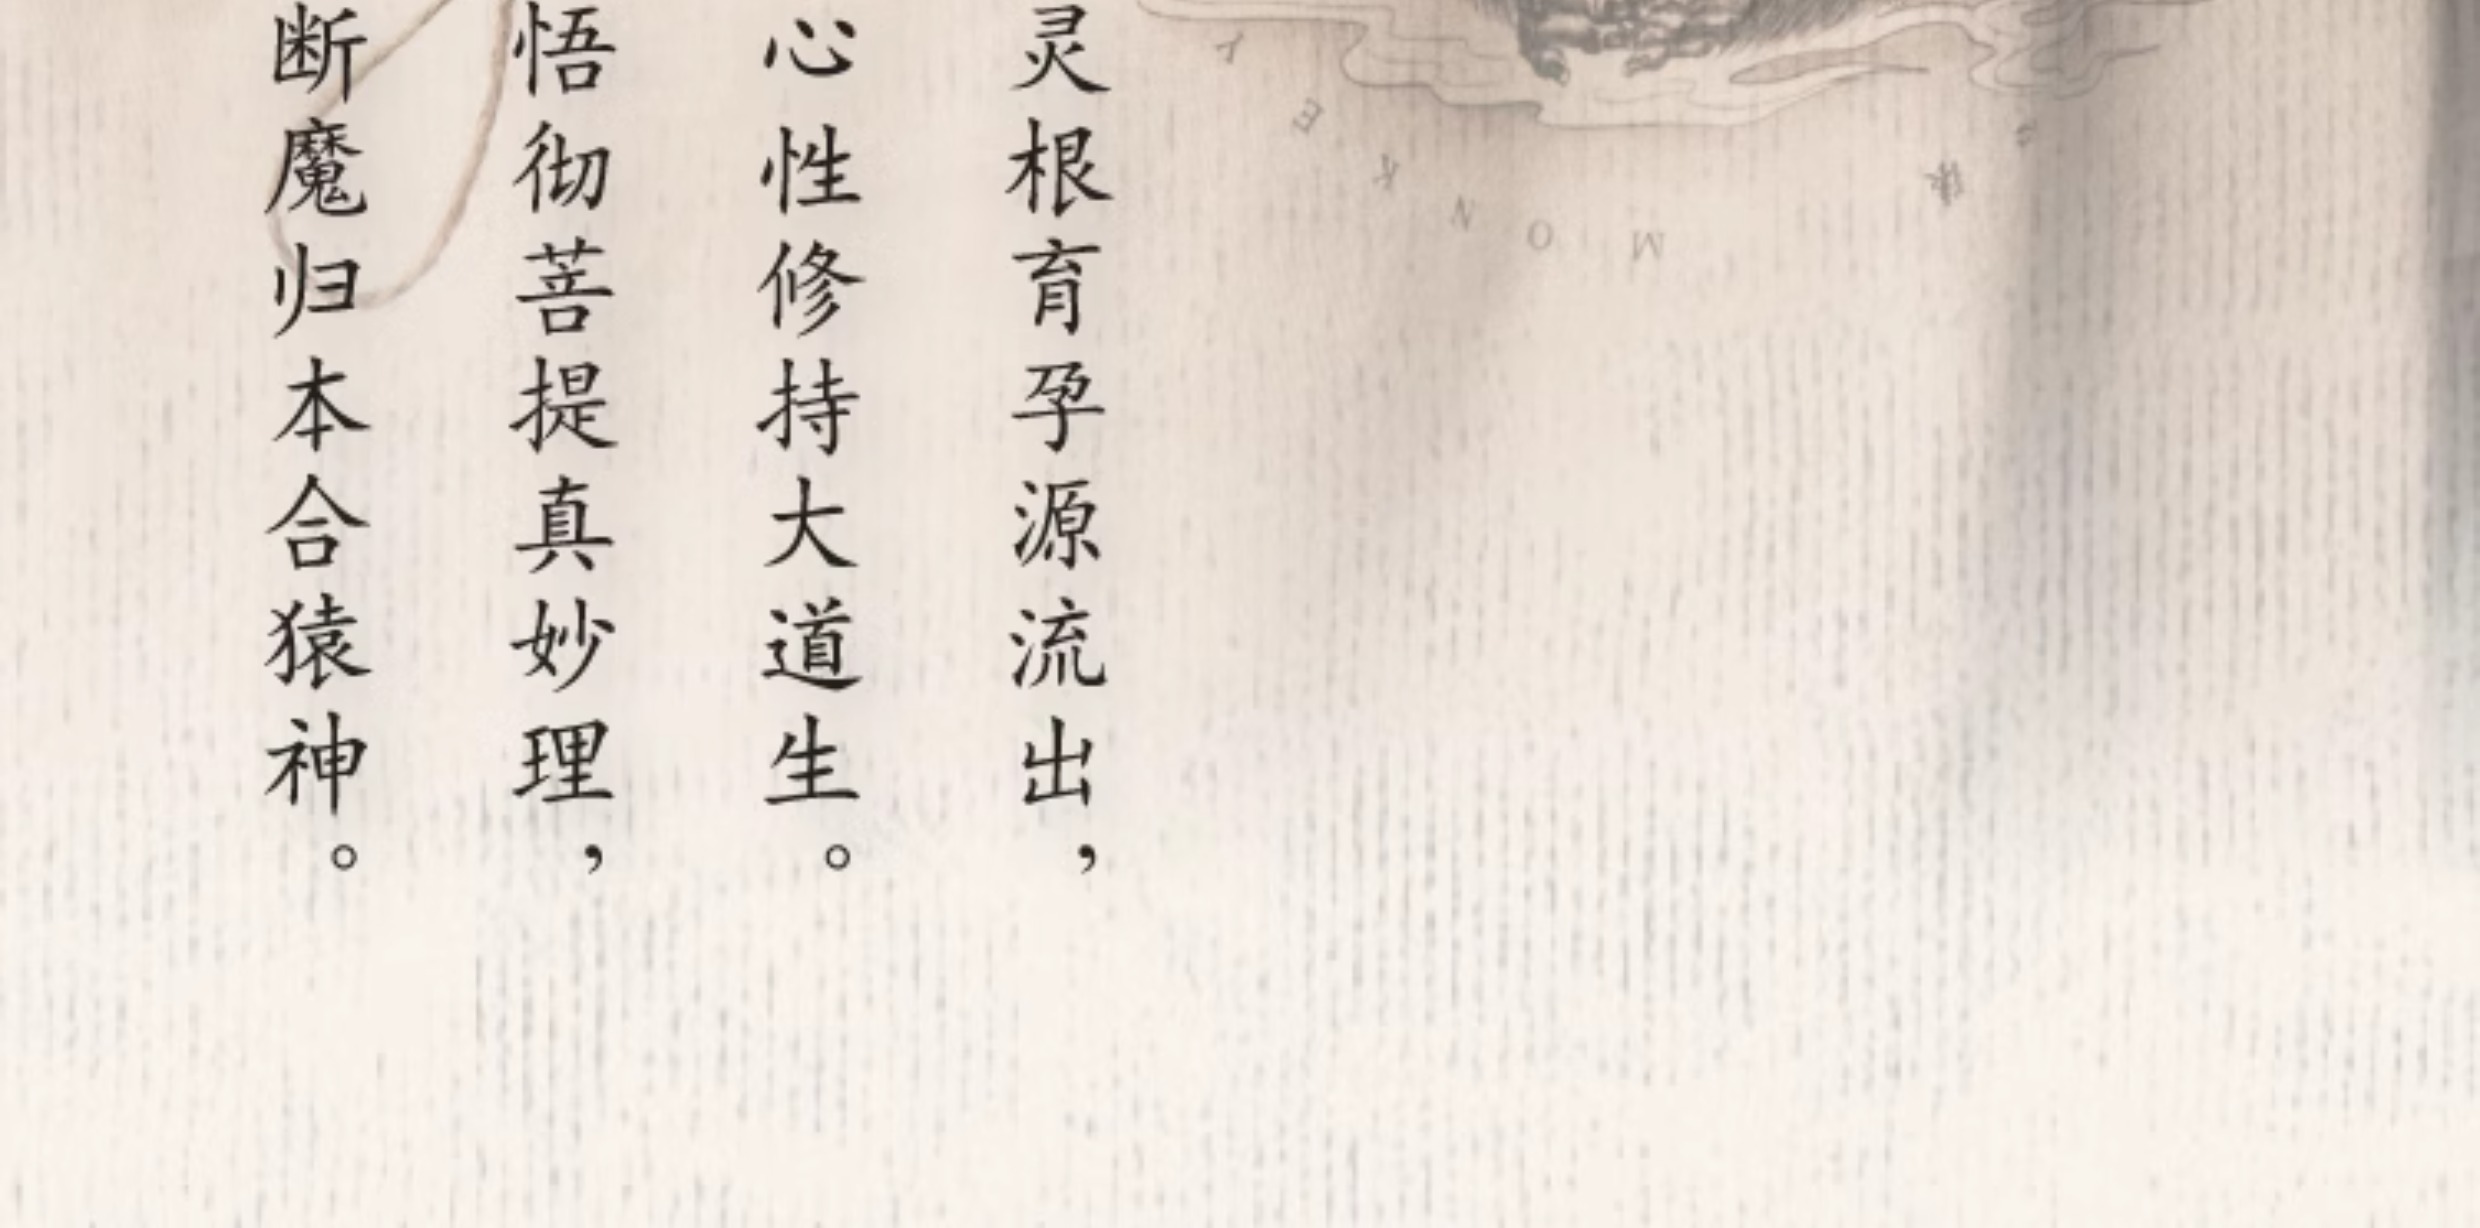 灵根育孕源流出，
心性修持大道生。
悟彻菩提真妙理，
断魔归本合猿神。
MONKEY